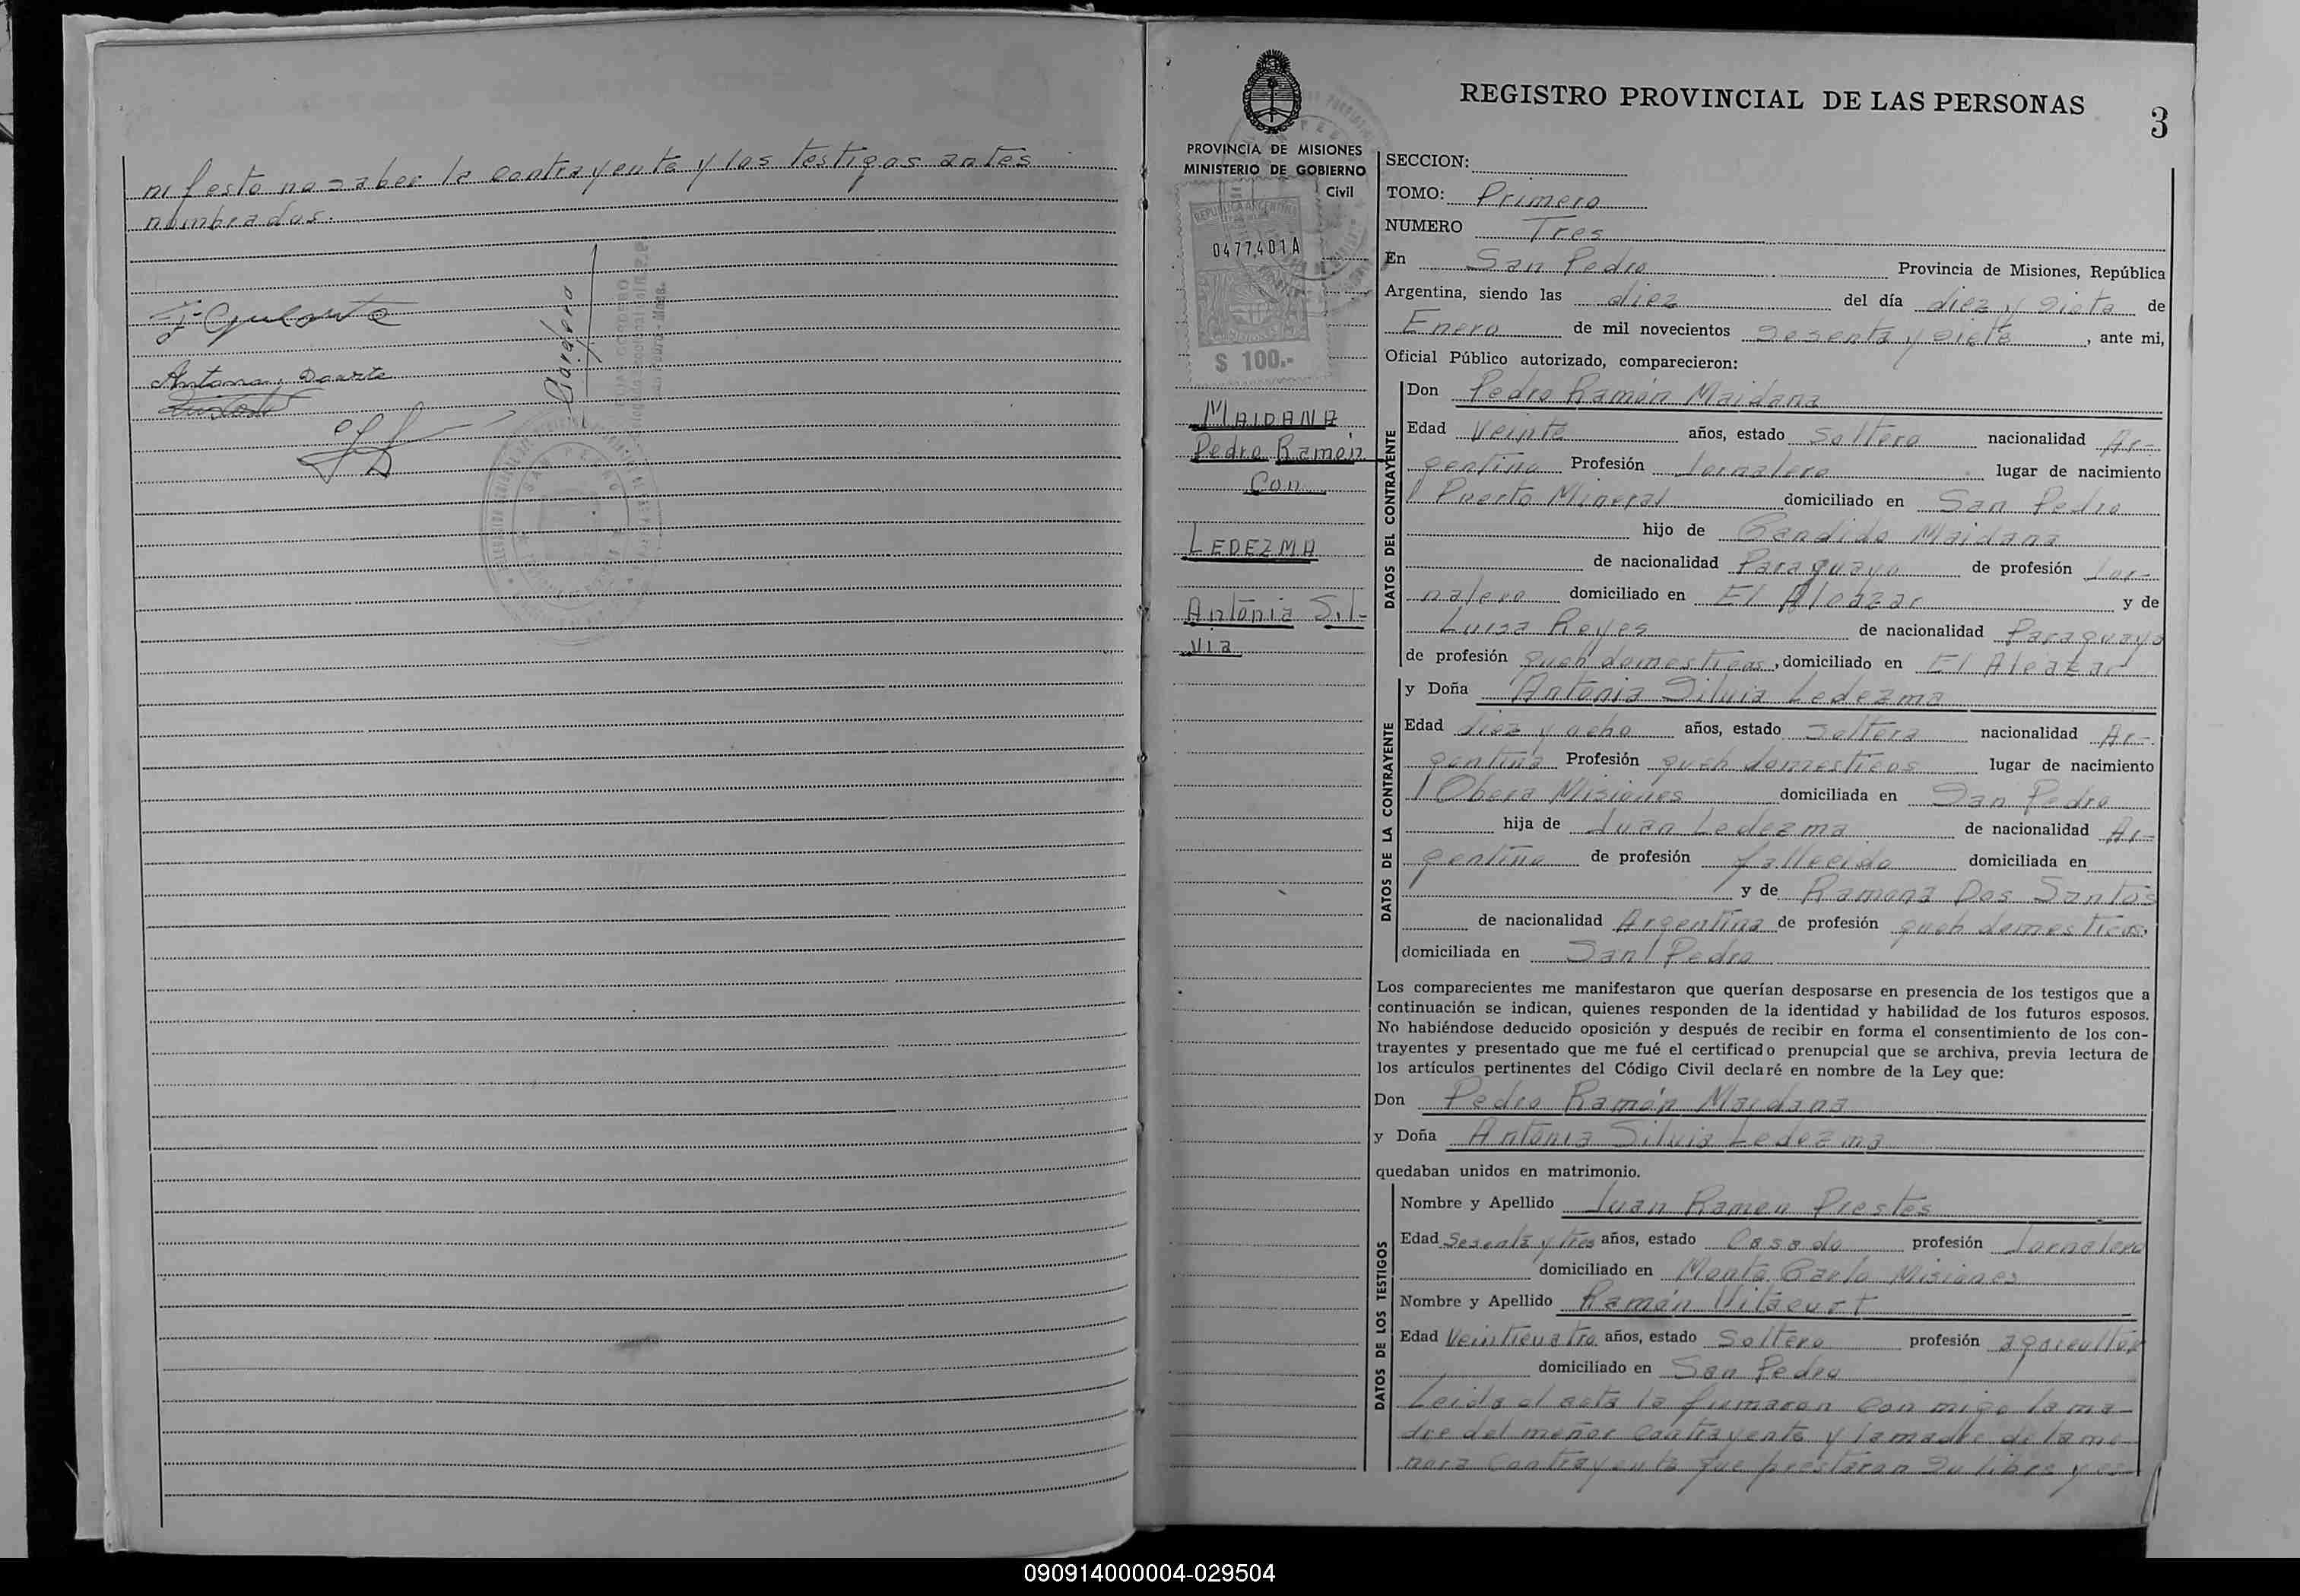 nifesto no saber la contrayente y los testigos antes
nombrados.
Antonia Duarte
REGISTRO PROVINCIAL DE LAS PERSONAS
3
PROVINCIA DE MISIONES
MINISTERIO DE GOBIERNO
Civil
REPUBLICA ARGENTINA
0477401A
$ 100.-
MAIDANA
Pedro Ramón
Con
LEDEZMA
Antonia Sil-
via
SECCION:
TOMO: Primero
NUMERO Tres
En San Pedro Provincia de Misiones, República
Argentina, siendo las diez del día diez y siete de
Enero de mil novecientos sesenta y siete, ante mi,
Oficial Público autorizado, comparecieron:
DATOS DEL CONTRAYENTE
Don Pedro Ramón Maidana
Edad Veinte años, estado Soltero nacionalidad Ar-
gentino Profesión Jornalero lugar de nacimiento
Puerto Mineral domiciliado en San Pedro
hijo de Candido Maidana
de nacionalidad Paraguayo de profesión Jor-
nalero domiciliado en El Alcazar y de
Luisa Reyes de nacionalidad Paraguaya
de profesión queh domesticos, domiciliado en El Alcazar
DATOS DE LA CONTRAYENTE
y Doña Antonia Silvia Ledezma
Edad diez y ocho años, estado Soltera nacionalidad Ar-
gentina Profesión queh domesticos lugar de nacimiento
Obera Misiones domiciliada en San Pedro
hija de Juan Ledezma de nacionalidad Ar-
gentino de profesión fallecido domiciliada en
y de Ramona Dos Santos
de nacionalidad Argentina de profesión queh domesticos,
domiciliada en San Pedro
Los comparecientes me manifestaron que querían desposarse en presencia de los testigos que a
continuación se indican, quienes responden de la identidad y habilidad de los futuros esposos.
No habiéndose deducido oposición y después de recibir en forma el consentimiento de los con-
trayentes y presentado que me fué el certificado prenupcial que se archiva, previa lectura de
los artículos pertinentes del Código Civil declaré en nombre de la Ley que:
Don Pedro Ramón Maidana
y Doña Antonia Silvia Ledezma
quedaban unidos en matrimonio.
DATOS DE LOS TESTIGOS
Nombre y Apellido Juan Ramon Prestes
Edad Sesenta y tres años, estado Casado profesión Jornalero
domiciliado en Monte Carlo Misiones
Nombre y Apellido Ramón Vitacurt
Edad Veinticuatro años, estado Soltero profesión agricultor
domiciliado en San Pedro
Leida el acta la firmaron con migo la ma-
dre del menor contrayente y la madre de la me-
nora contrayente que prestaron su libre y es-
090914000004-029504